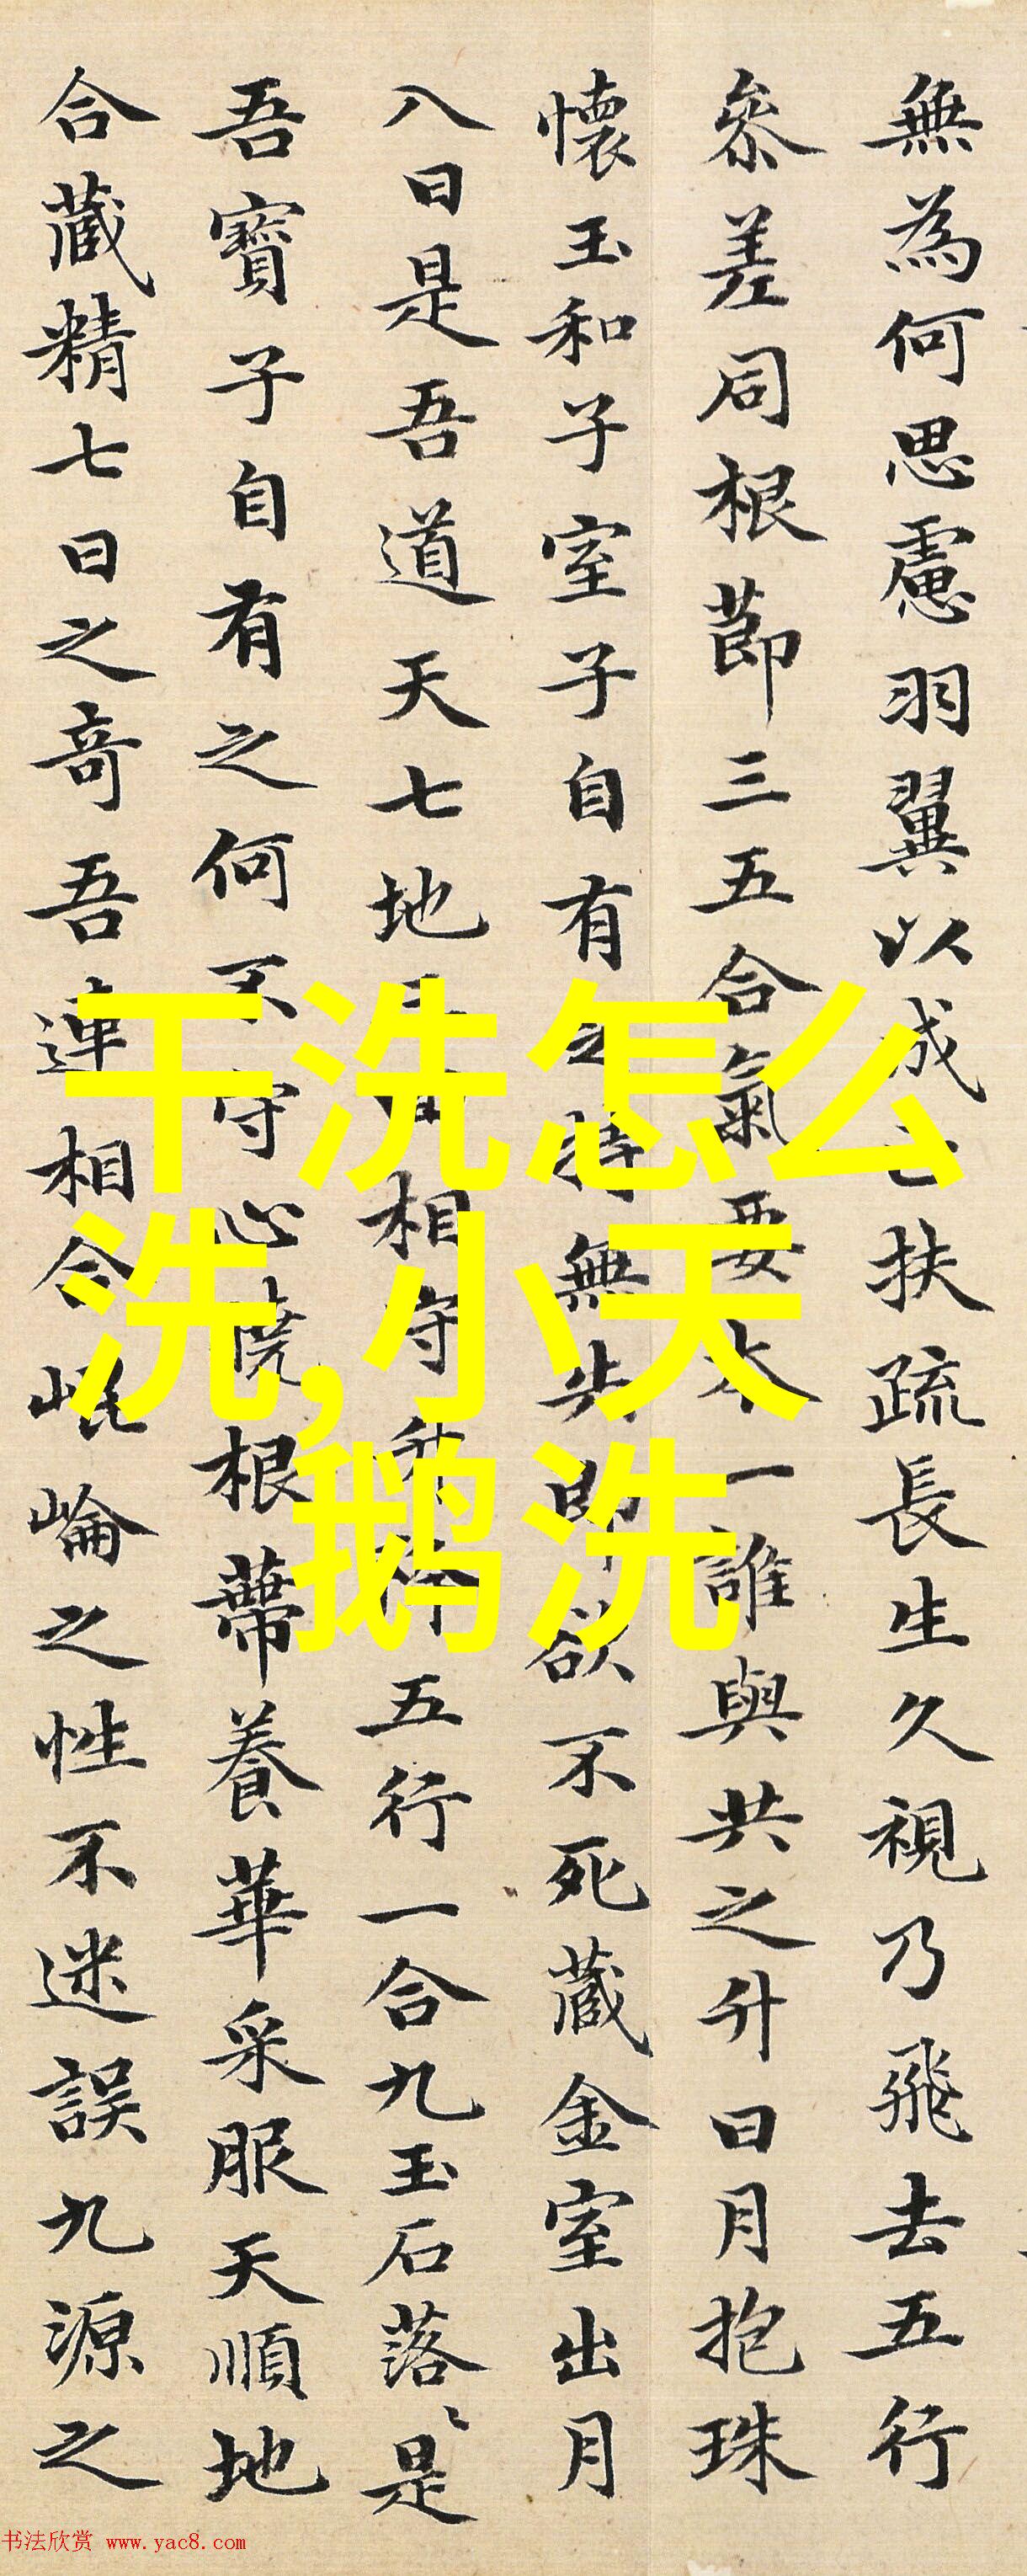 無為何思慮羽翼以成扶疏長生久視乃飛去五行
參差同根節三五合氣要本一誰與共之升日月抱珠
懷玉和子室子自有之持無失即欲不死藏金室出月
八日是吾道天七地三相守升降五行一合九玉石落〻是
吾寶子自有之何不守心曉根蔕養華采服天順地
合藏精七日之奇吾連相合崐崘之性不迷誤九源之
干洗怎么
洗,小天
鹅洗
书法欣赏 www.yac8.com